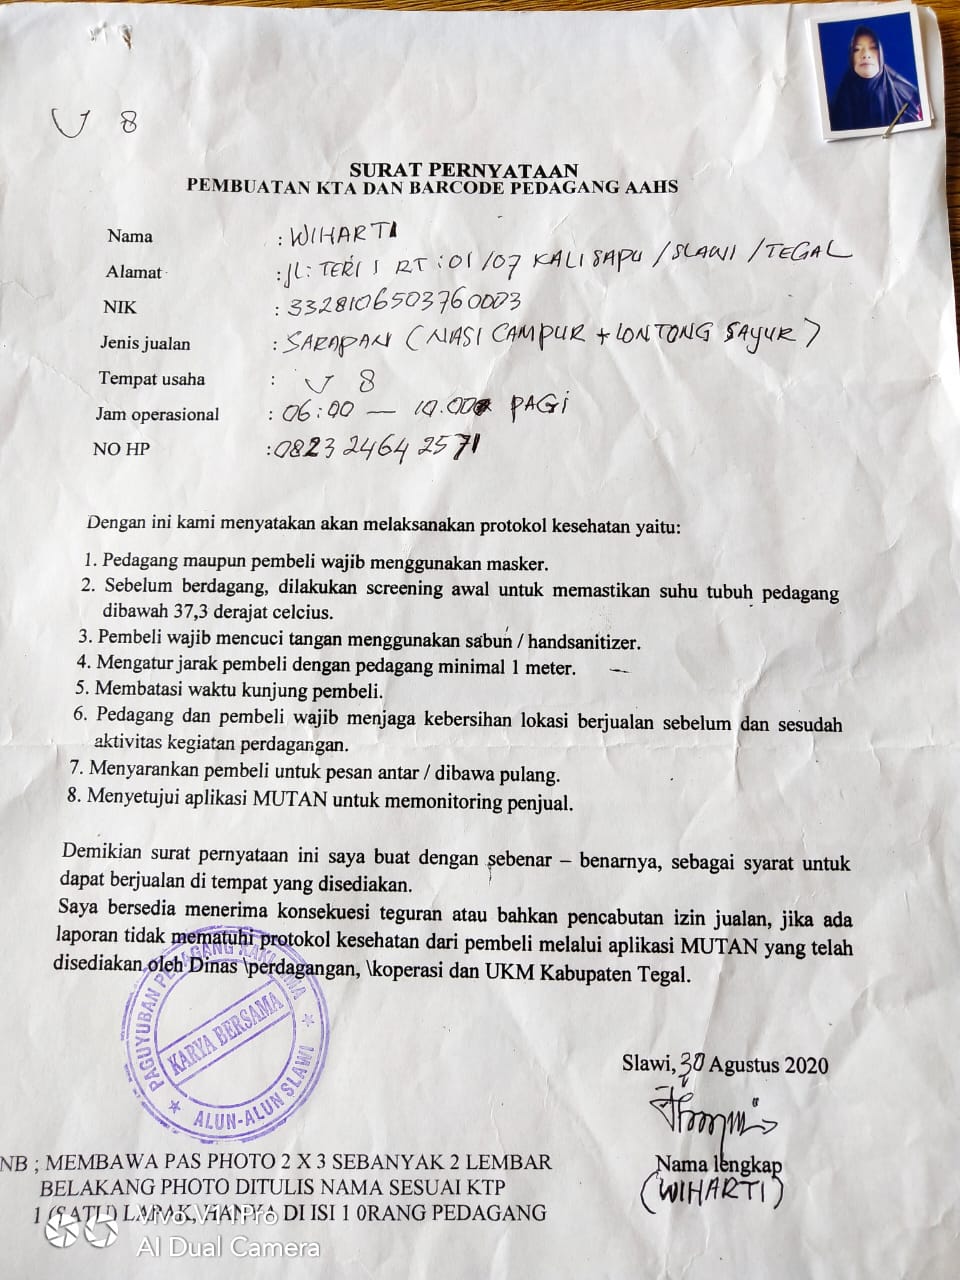 V 8
SURAT PERNYATAAN
PEMBUATAN KTA DAN BARCODE PEDAGANG AAHS
Nama : WIHARTI
Alamat : JL: TERI 1 RT : 01 /07 KALISAPU /SLAWI /TEGAL
NIK : 3328106503760003
Jenis jualan : SARAPAN (NASI CAMPUR + LONTONG SAYUR)
Tempat usaha : V 8
Jam operasional : 06:00 — 10.00 PAGI
NO HP : 0823 2464 2571
Dengan ini kami menyatakan akan melaksanakan protokol kesehatan yaitu:
1. Pedagang maupun pembeli wajib menggunakan masker.
2. Sebelum berdagang, dilakukan screening awal untuk memastikan suhu tubuh pedagang
dibawah 37,3 derajat celcius.
3. Pembeli wajib mencuci tangan menggunakan sabun / handsanitizer.
4. Mengatur jarak pembeli dengan pedagang minimal 1 meter.
5. Membatasi waktu kunjung pembeli.
6. Pedagang dan pembeli wajib menjaga kebersihan lokasi berjualan sebelum dan sesudah
aktivitas kegiatan perdagangan.
7. Menyarankan pembeli untuk pesan antar / dibawa pulang.
8. Menyetujui aplikasi MUTAN untuk memonitoring penjual.
Demikian surat pernyataan ini saya buat dengan sebenar – benarnya, sebagai syarat untuk
dapat berjualan di tempat yang disediakan.
Saya bersedia menerima konsekuesi teguran atau bahkan pencabutan izin jualan, jika ada
laporan tidak mematuhi protokol kesehatan dari pembeli melalui aplikasi MUTAN yang telah
disediakan oleh Dinas \perdagangan, \koperasi dan UKM Kabupaten Tegal.
PAGUYUBAN PEDAGANG KAKI LIMA
KARYA BERSAMA
ALUN-ALUN SLAWI
Slawi, 30 Agustus 2020
Nama lengkap
(WIHARTI)
NB ; MEMBAWA PAS PHOTO 2 X 3 SEBANYAK 2 LEMBAR
BELAKANG PHOTO DITULIS NAMA SESUAI KTP
1 (SATU) LAPAK, HANYA DI ISI 1 0RANG PEDAGANG
AI Dual Camera